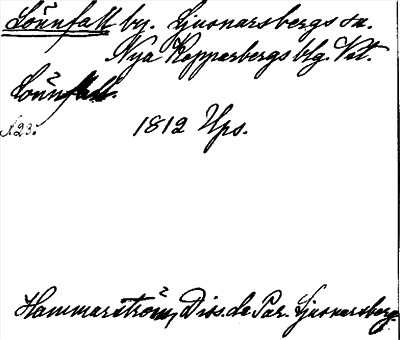 Lönnfall by. Ljusnarsbergs sn.
Nya Kopparbergs blg. Vstm.
Lönnfall.
A23:
1812 Ups.
Hammarström, Diss. de Par. Ljusnarsberg.